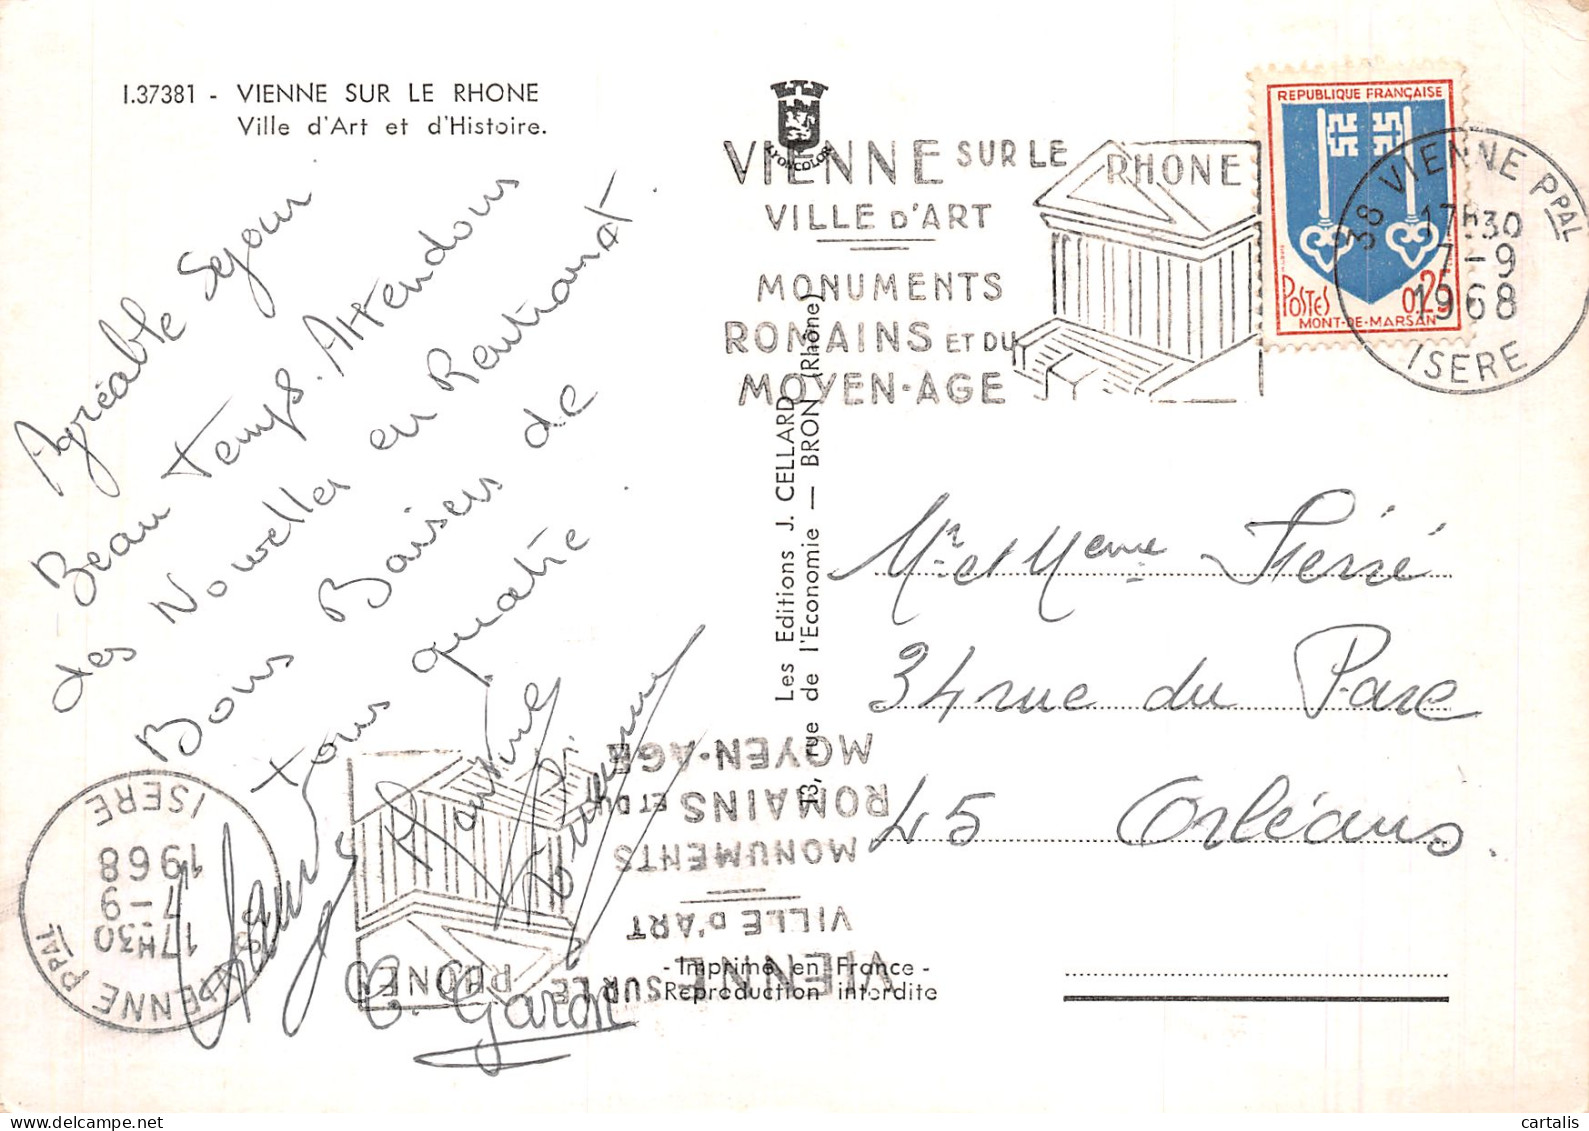 I.37381 - VIENNE SUR LE RHONE
Ville d'Art et d'Histoire.
Agréable Sejour
Beau temps. Attendons
des Nouvelles en Rentrant.
Bons Baisers de
tous quatre
C. Garon
LYONCOLOR
VIENNE SUR LE RHONE
VILLE D'ART
MONUMENTS
ROMAINS ET DU
MOYEN-AGE
REPUBLIQUE FRANÇAISE
POSTES 0,25
MONT-DE-MARSAN
38 VIENNE PPAL
17H30
7-9
1968
ISERE
Les Editions J. CELLARD
13, rue de l'Economie — BRON (Rhône)
Mr et Meme Fierré
34 rue du Parc
45 Orléans.
VIENNE SUR LE RHONE
VILLE D'ART
MONUMENTS
ROMAINS ET DU
MOYEN-AGE
38 VIENNE PPAL
17H30
7-9
1968
ISERE
- Imprimé en France -
Reproduction interdite
cartalis